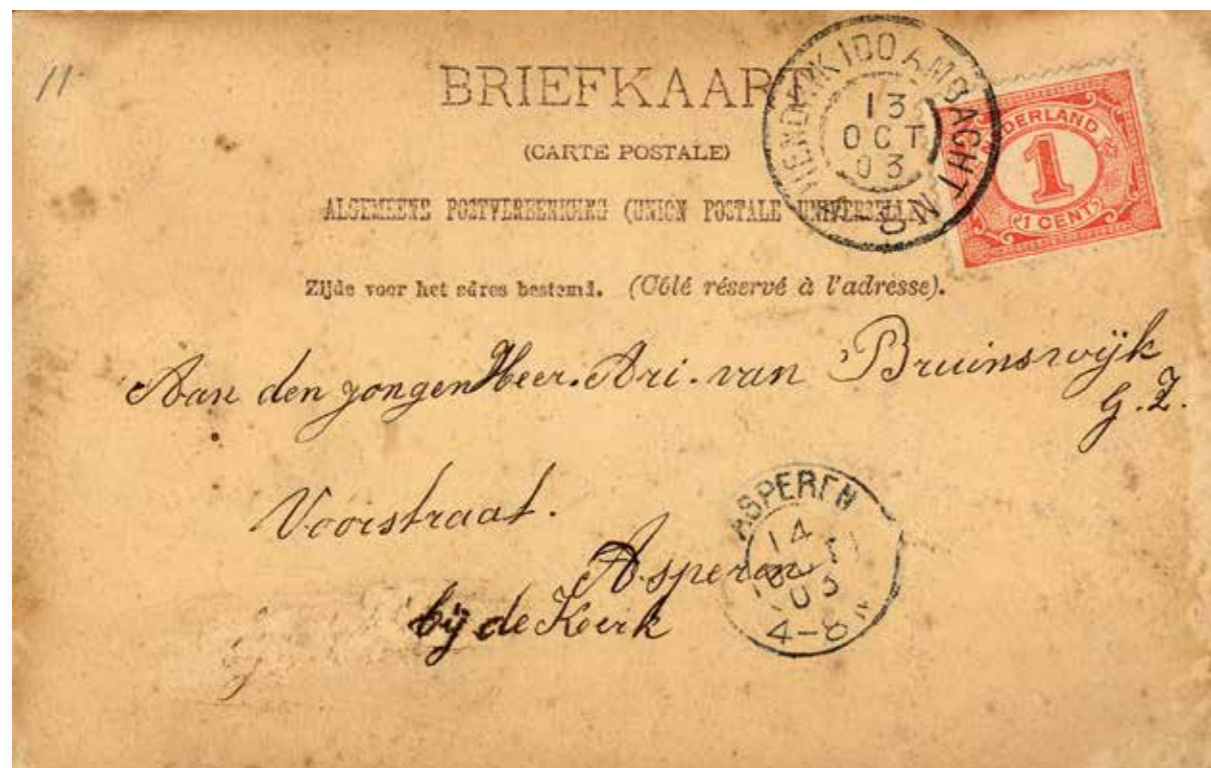 11
BRIEFKAART
(CARTE POSTALE)
ALGEMEENE POSTVEREENIGING (UNION POSTALE UNIVERSELLE)
Zijde voor het adres bestemd. (Côté réservé à l'adresse).
HENDRIK IDO AMBACHT
13
OCT
03
8N
NEDERLAND
1
1 CENT
Aan den jongen Heer. Ari. van Bruinswijk
G. Z.
Voorstraat.
Asperen
bij de Kerk
ASPEREN
14
OCT
03
4-8